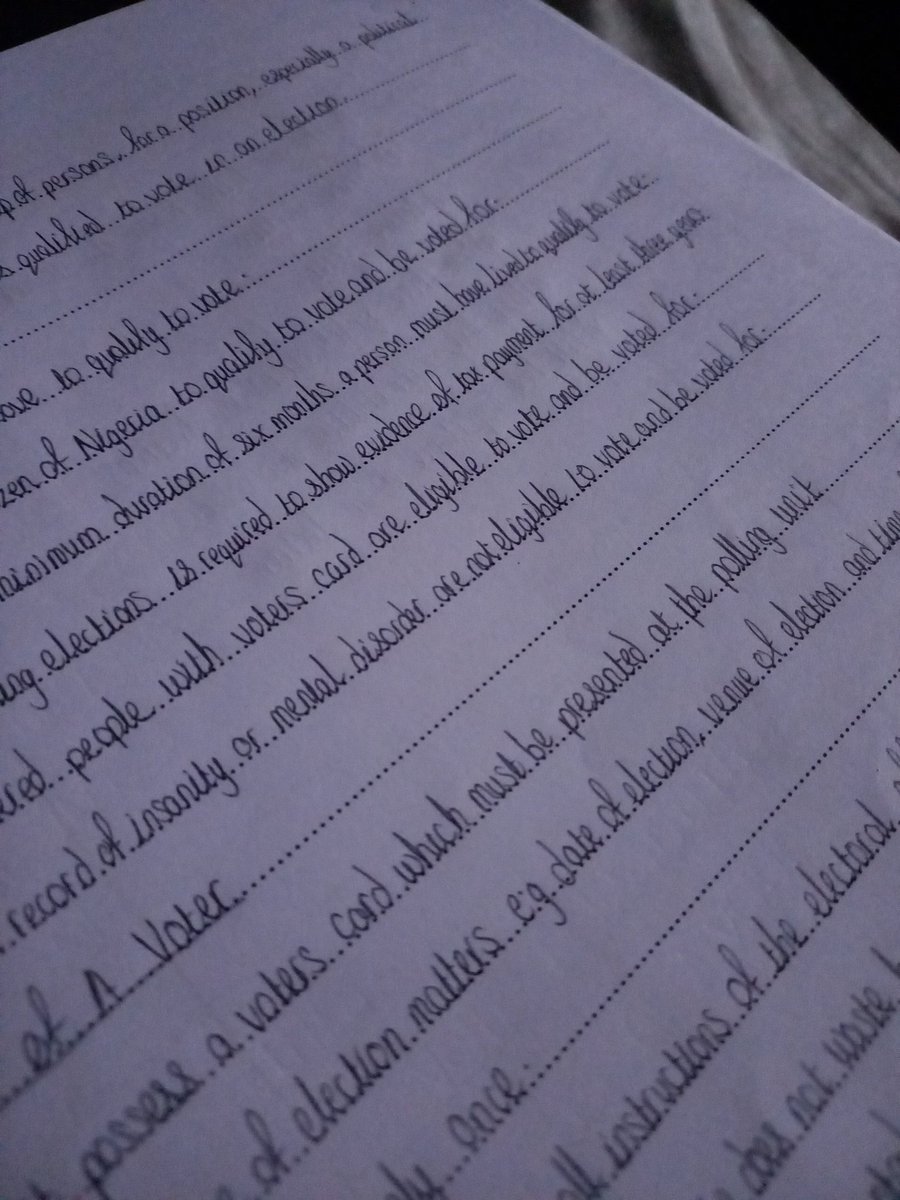 of persons, for a position, especially a political
qualified to vote in an election.
to qualify to vote.
of Nigeria to qualify to vote and be voted for.
minimum duration of six months a person must have lived to qualify to vote.
elections is required to show evidence of tax payment for at least three years.
people with voters card are eligible to vote and be voted for.
record of insanity or mental disorder are not eligible to vote and be voted for.
of A Voter
possess a voters card which must be presented at the polling unit
of election matters e.g date of election, venue of election and
once.
instructions of the electoral
does not waste